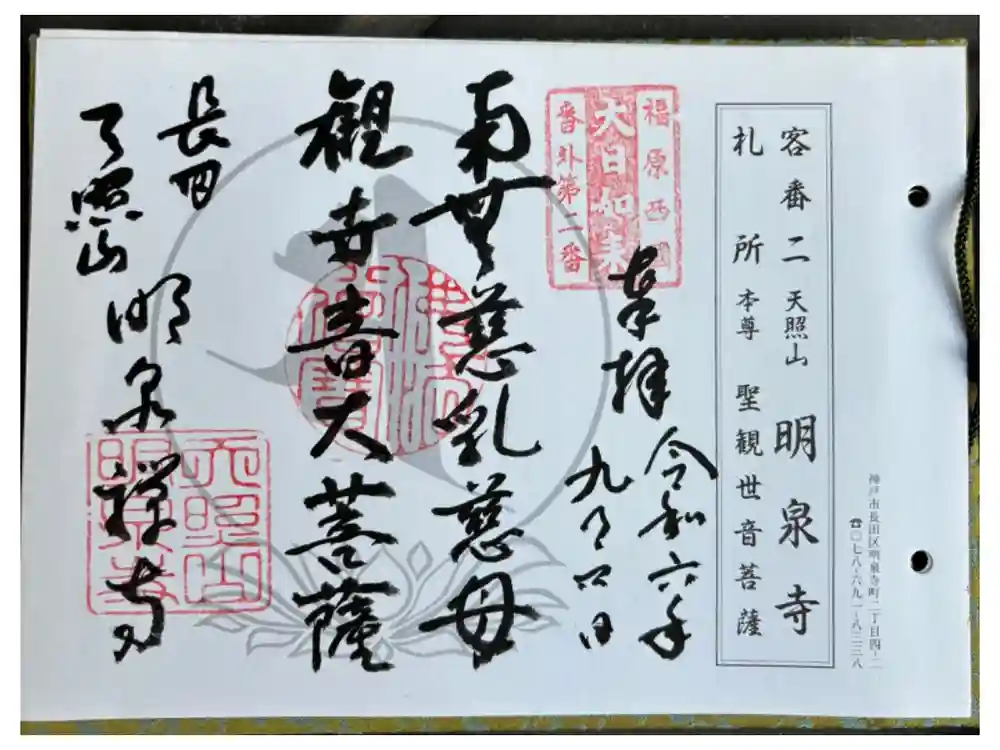 神戸市長田区明泉寺町二丁目四-二
☎〇七八-六九一-八三三八
客番二 天照山 明泉寺
札所 本尊 聖観世音菩薩
福原西國
大日如来
番外第二番
奉拝 令和六年
九月
日
南無慈乳慈母
観世音大菩薩
長田
天照山
明泉禅寺
天照山
明泉寺